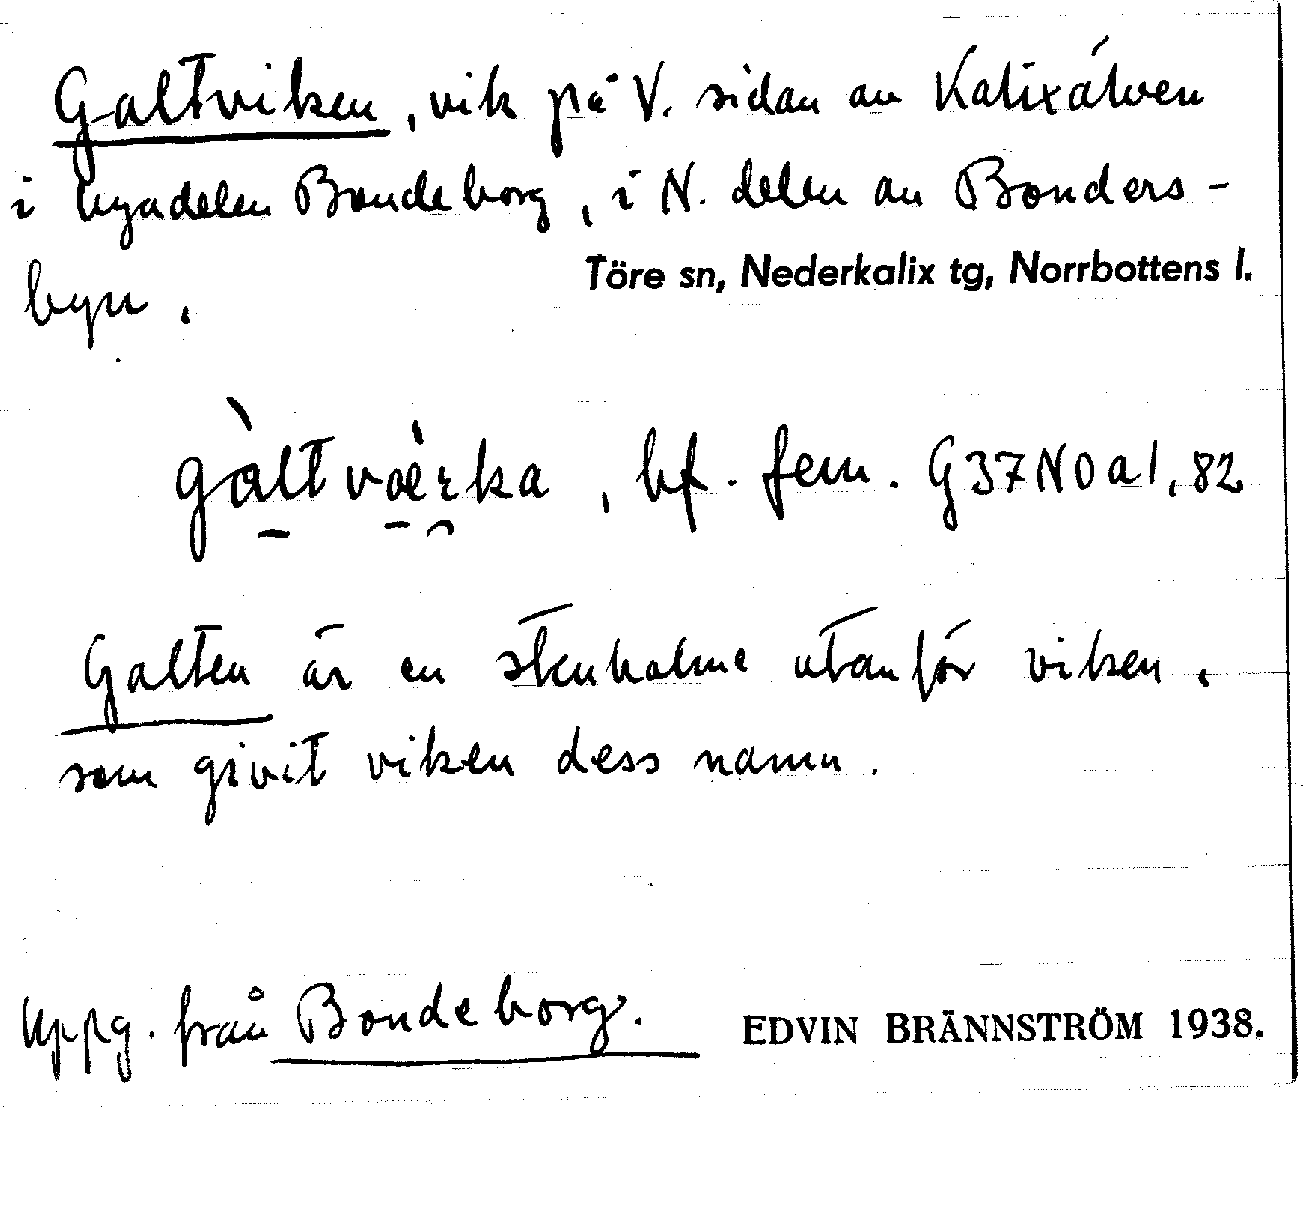 Galtviken, vik på V. sidan av Kalixälven
i byadelen Bondeborg, i N. delen av Bonders-
byn.
Töre sn, Nederkalix tg, Norrbottens l.
bf. fem. G37NOa1,82
Galten är en stenholme utanför viken,
som givit viken dess namn.
Uppg. från Bondeborg.
EDVIN BRÄNNSTRÖM 1938.